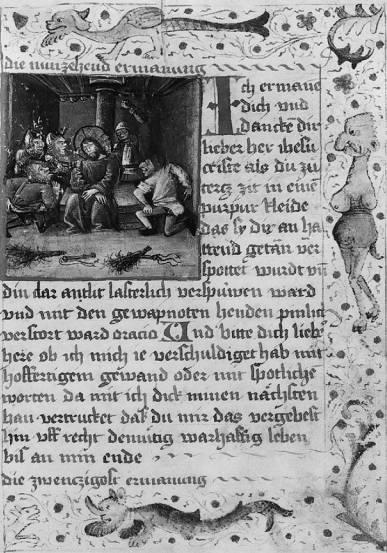 die nunzehend ermanung
Ich ermane
dich vnd
dancke dir
lieber her ihesu
criste als du zu
tertz zit in eine
purpur kleide
das sy dir an ha
ttend getan ver
spottet wurdt vn
din clar antlit lasterlich verspuwen ward
vnd mit den gewapnoten henden pinlich
verstort ward oracio Vnd bitte dich liebe
here ob ich mich ie verschuldiget hab mit
hoffertigem gewand oder mit spotliche
worten da mit ich dick minen nächsten
han vertrucket daß du mir das vergebest
hin vff recht demütig warhafftig leben
bis an min ende
die zwenzigost ermanung